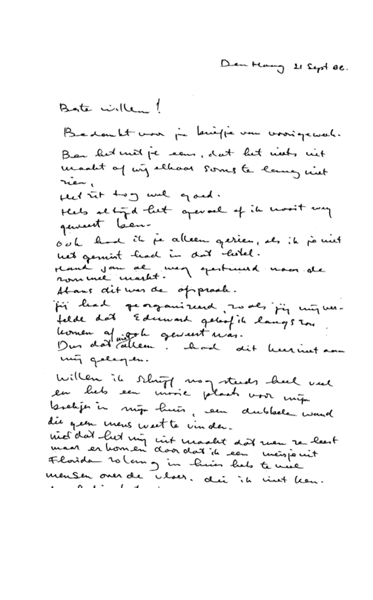 Den Haag 21 Sept 02.
Beste Willem!
Bedankt voor je briefje van vorige week.
Ben het met je eens, dat het niets uit
maakt of wij elkaar soms te lang niet
zien,
Het zit tog wel goed.
Heb altijd het gevoel of ik nooit weg
geweest ben.
Ook had ik je alleen gezien, als ik je niet
had in dat hotel.
Hand jou al weg gestuurd naar de
rommel markt.
Althans dit was de afspraak.
Jij had georganiseerd, zoals jij mij ver-
telde dat Eduward geloof ik langs zou
komen of ook geweest was.
Dus dat alleen. had dit keer niet aan
mij gelegen.
Willem ik schrijf nog steeds heel veel
en heb een mooie plaats voor mijn
boekjes in mijn huis, een dubbele wand
die geen mens weet te vinden.
niet dat het mij uit maakt dat men ze leest
maar er komen door dat ik een meisje uit
Florida zolang in huis heb te veel
mensen over de vloer. die ik niet ken.